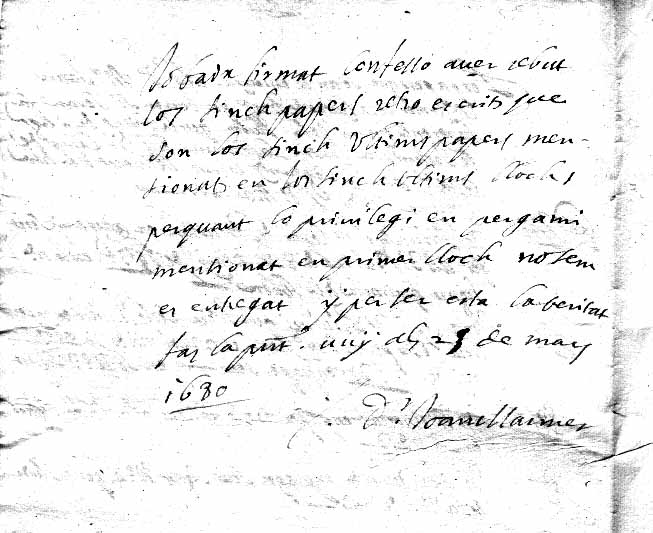 Jo baix firmat confesso auer rebut
los sinch papers retro escrits que
son los sinch ultims papers men-
sionats en los sinch ultims llochs
perquant lo privilegi en pergami
mentionat en primer lloch no sem
es entregat y per ser esta la veritat
fas la pnt. vuy als 25 de mars
1680
Dr. Joan Llaurer